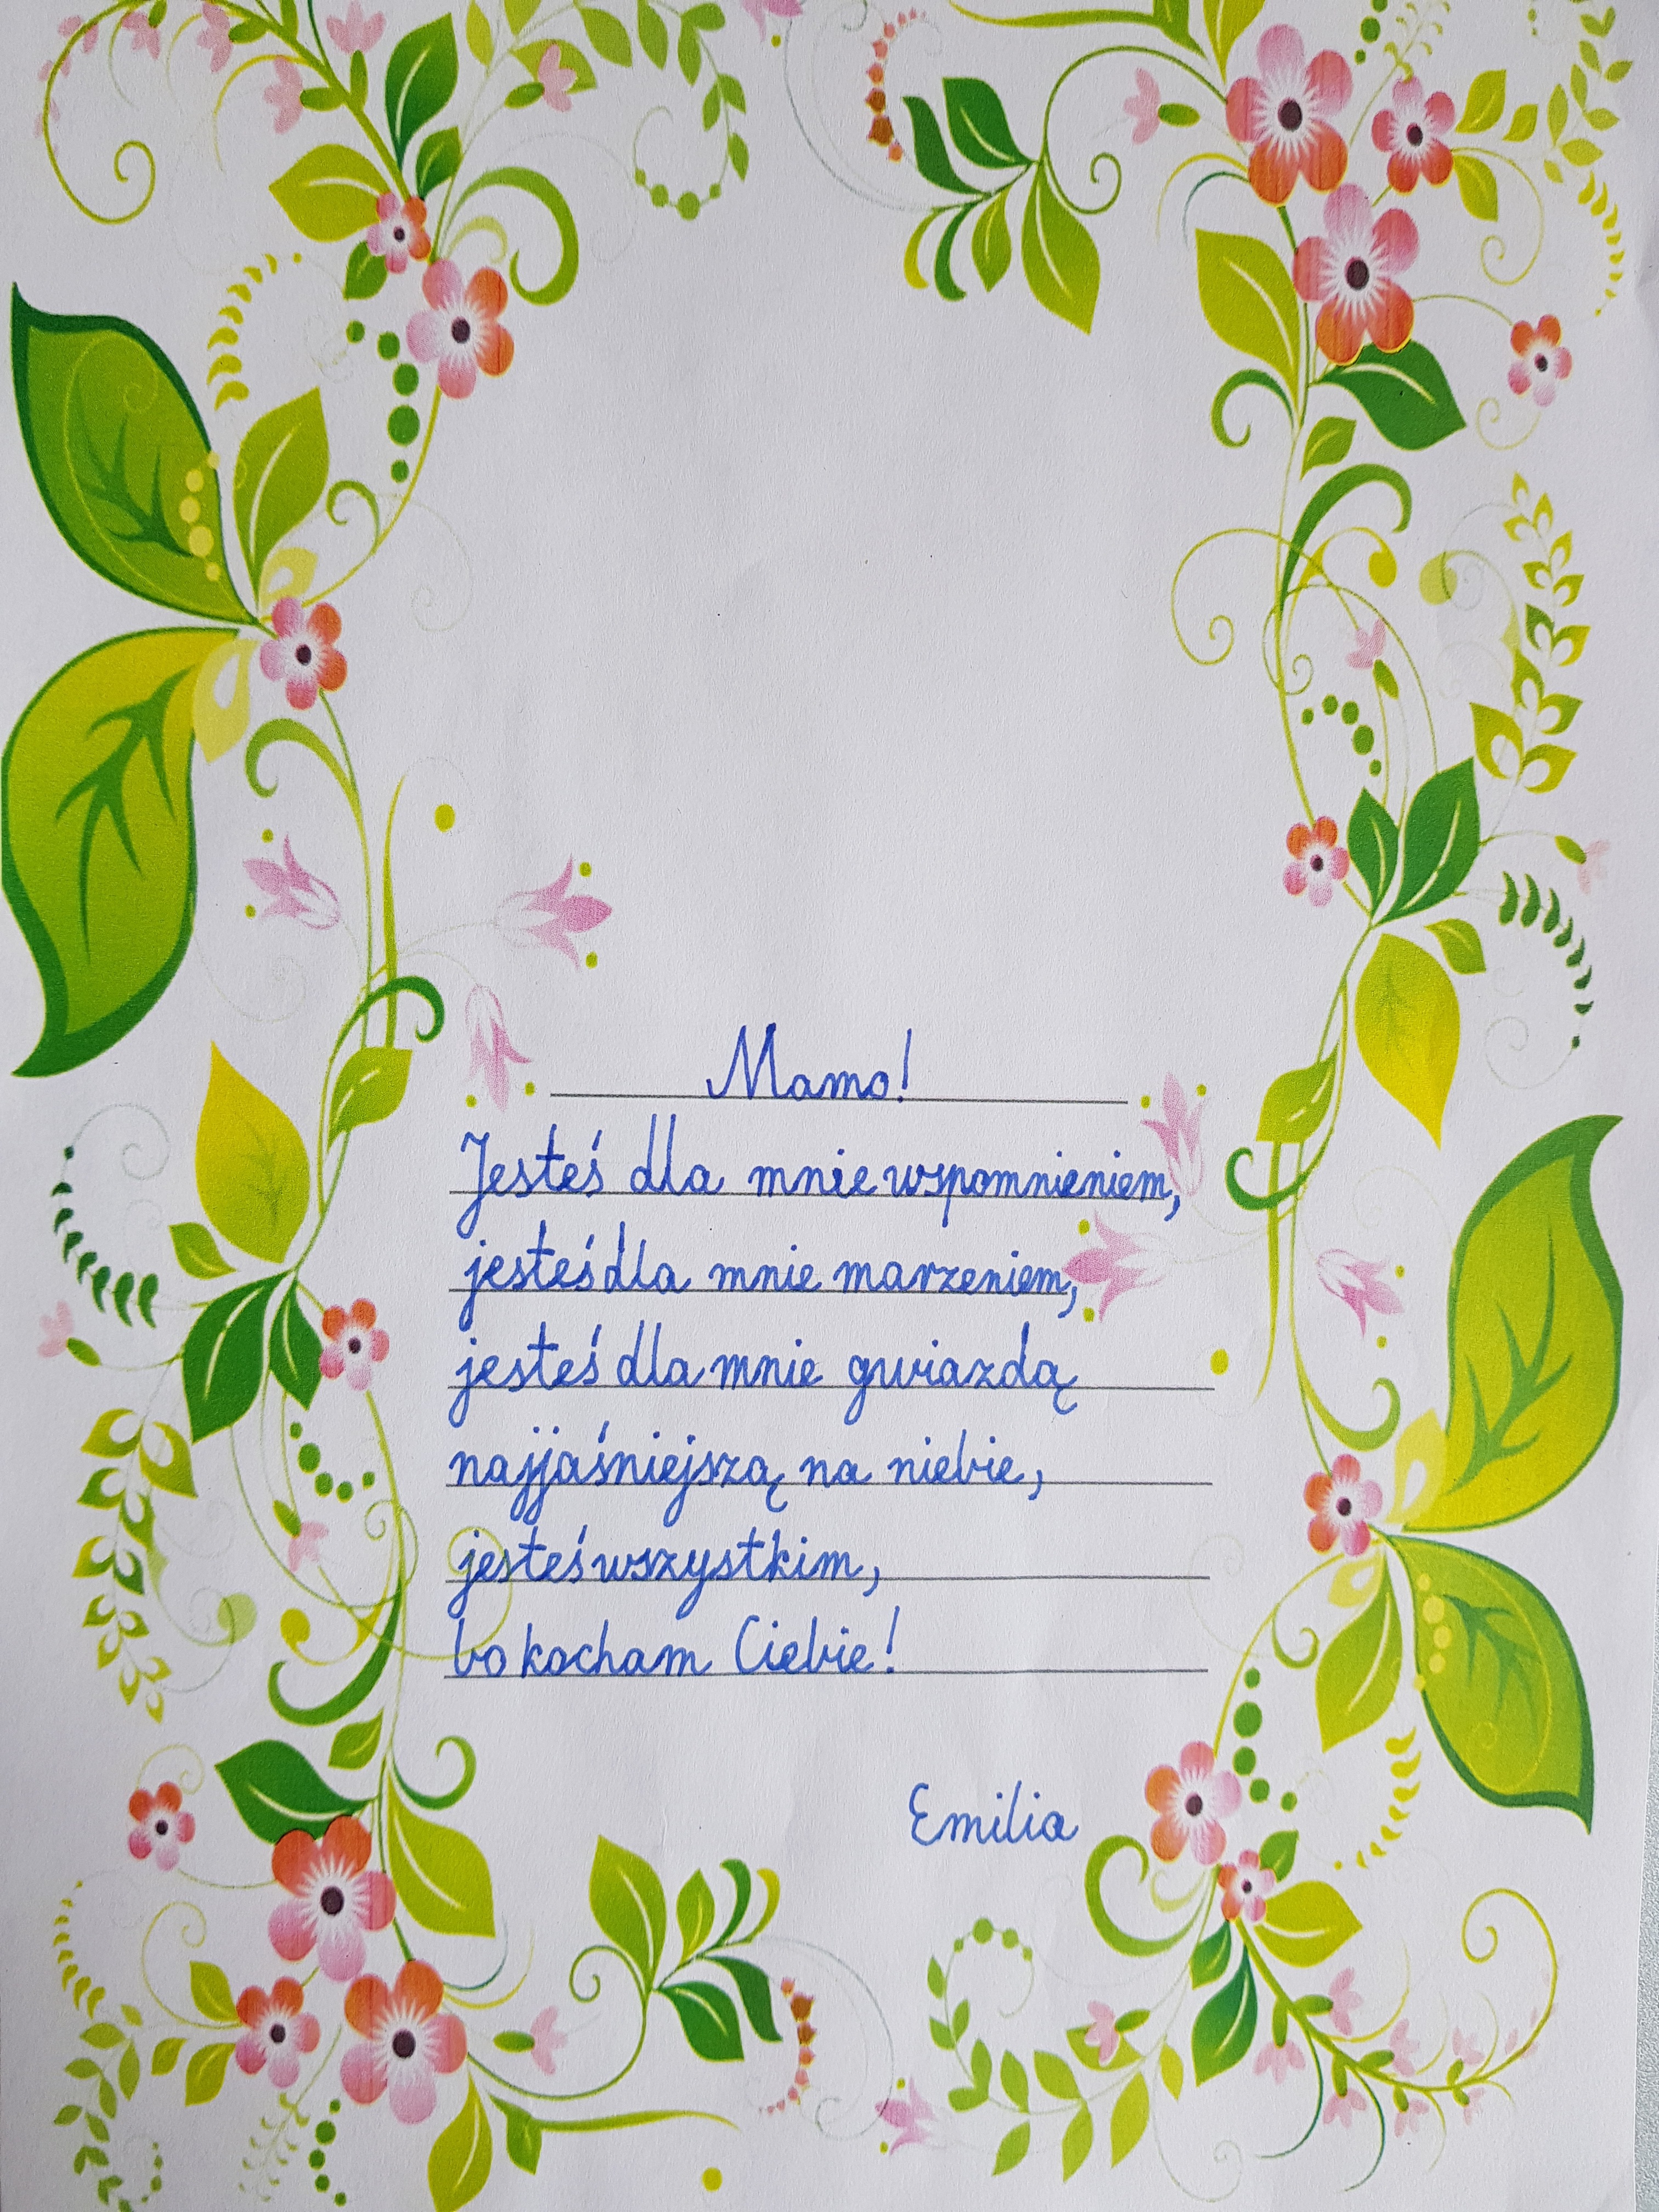 Mamo!
Jesteś dla mnie wspomnieniem,
jesteś dla mnie marzeniem,
jesteś dla mnie gwiazdą
najjaśniejszą na niebie,
jesteś wszystkim,
bo kocham Ciebie!
Emilia